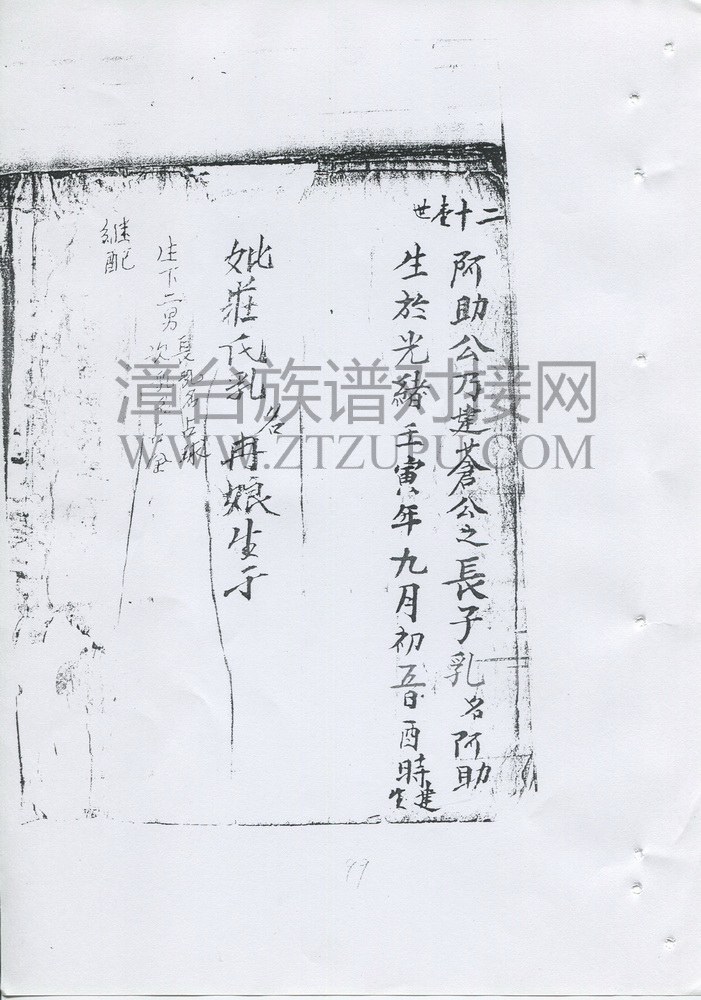 二十壹世
阿助公乃建蒼公之長子乳名阿助
生於光緒壬寅年九月初五日酉時建生
妣莊氏乳名冉娘生于
生下二男長男名占
次男
継配
漳台族谱对接网
WWW.ZTZUPU.COM
99